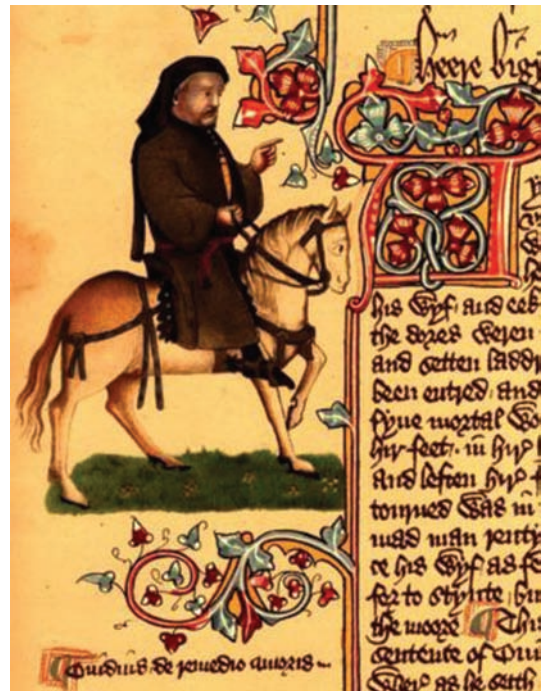 heere bigy
his wyf / and eek
the dores weren
and setten laddr
been entred / and
fyue mortal wo
hir feet / in hir
And leften hir f
tourned was in
mad man renty
ce his wyf as fe
for to stynte / bu
the moore This
sentence of Oui
wher as he seith
Ouidius de remedio amoris